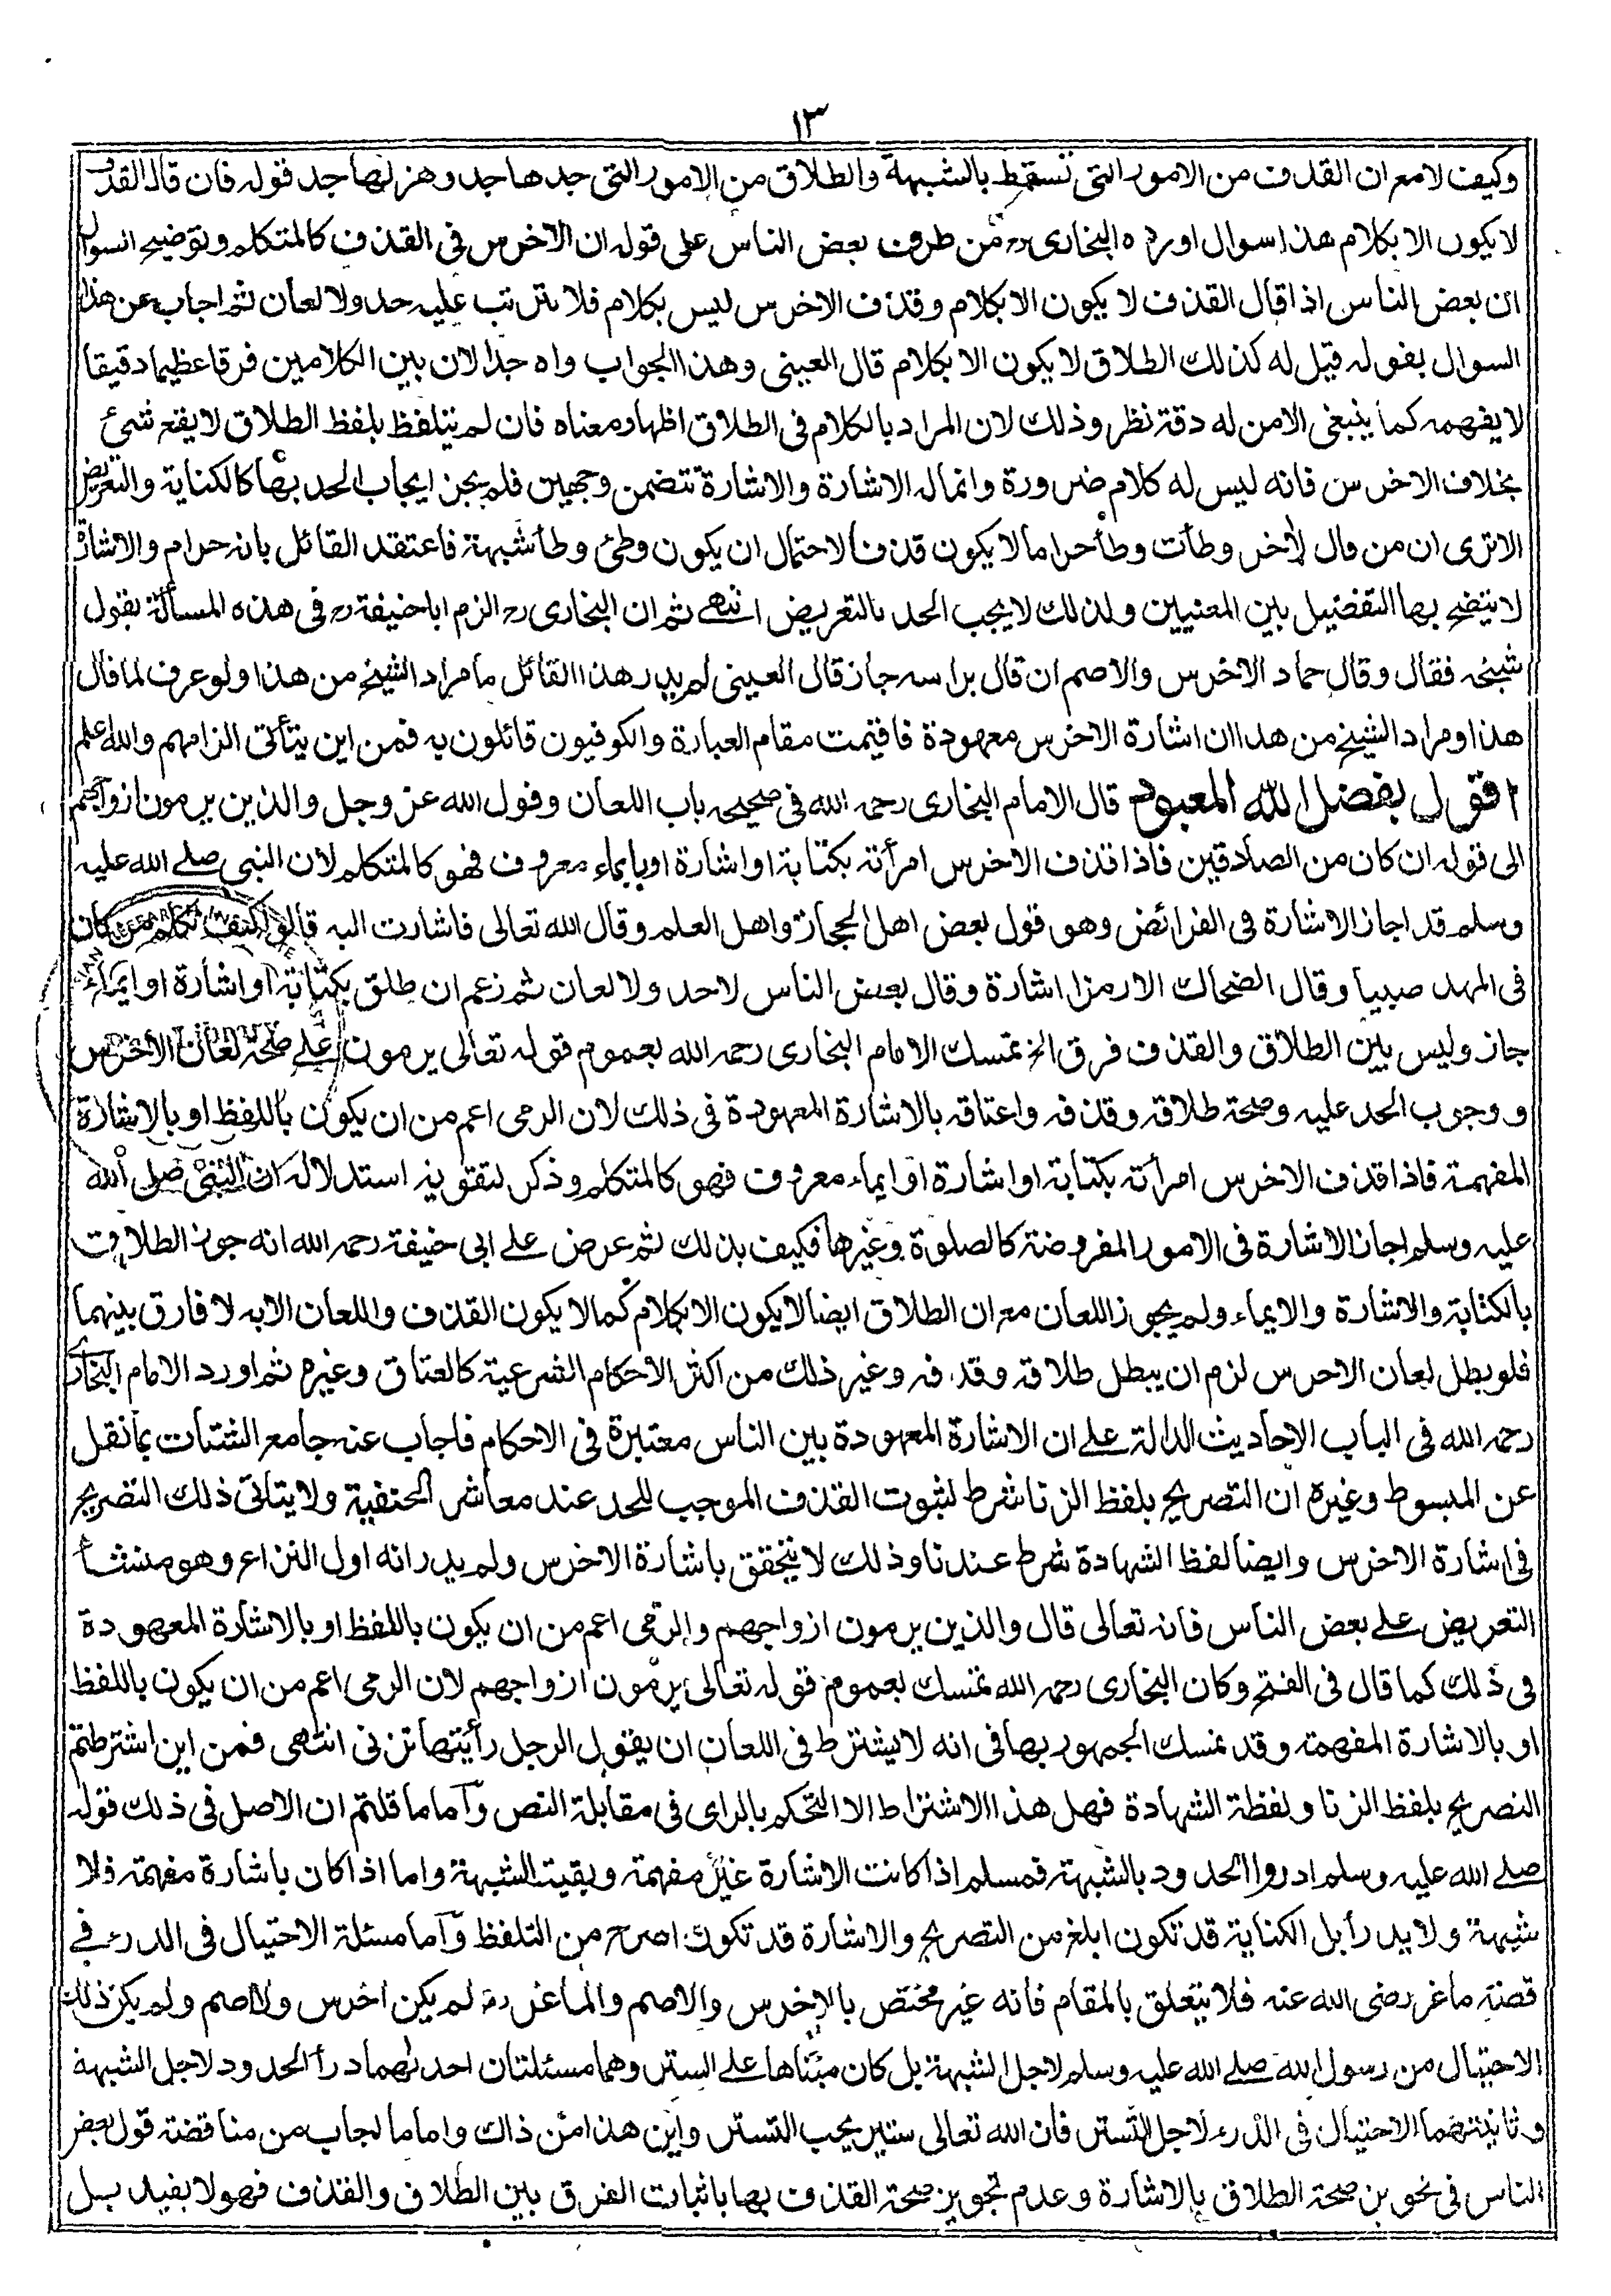 ١٣
وكيف لا مع ان القذف من الامور التى تسقط بالشبهة والطلاق من الامور التى جدها جد وهزلها جد قوله فان قال القذف
لا يكون الا بكلام هذا سوال اورده البخارى رح من طرف بعض الناس على قوله ان الاخرس فى القذف كالمتكلم وتوضيح السوال
ان بعض الناس اذا قال القذف لا يكون الا بكلام وقذف الاخرس ليس بكلام فلا يترتب عليه حد ولا لعان ثم اجاب عن هذا
السوال بقوله قيل له كذلك الطلاق لا يكون الا بكلام قال العينى وهذا الجواب واه جدا لان بين الكلامين فرقا عظيما دقيقا
لا يفهمه كما ينبغى الا من له دقة نظر وذلك لان المراد بالكلام فى الطلاق اظهار معناه فان لم يتلفظ بلفظ الطلاق لا يقع شئ
بخلاف الاخرس فانه ليس له كلام ضرورة وانما له الاشارة والاشارة تتضمن وجهين فلم يجز ايجاب الحد بها كالكناية والتعريض
الا ترى ان من قال لأخر وطأت وطأ حراما لا يكون قذفا لاحتمال ان يكون وطئ وطأ شبهة فاعتقد القائل بانه حرام والاشارة
لا يتضح بها التفضيل بين المعنيين ولذلك لا يجب الحد بالتعريض انتهى ثم ان البخارى رح الزم ابا حنيفة رح فى هذه المسألة بقول
شيخه فقال وقال حماد الاخرس والاصم ان قال براسه جاز قال العينى لم يدر هذا القائل ما مراد الشيخ من هذا ولو عرف لما قال
هذا ومراد الشيخ من هذا ان اشارة الاخرس معهودة فاقيمت مقام العبارة والكوفيون قائلون به فمن اين يتأتى الزامهم والله اعلم
اقول بفضل الله المعبود قال الامام البخارى رحمه الله فى صحيحه باب اللعان وقول الله عز وجل والذين يرمون ازواجهم
الى قوله ان كان من الصادقين فاذا قذف الاخرس امرأته بكتابة او اشارة او بايماء معروف فهو كالمتكلم لان النبى صلے الله عليه
وسلم قد اجاز الاشارة فى الفرائض وهو قول بعض اهل الحجاز واهل العلم وقال الله تعالى فاشارت اليه قالوا كيف نكلم من كان
فى المهد صبيا وقال الضحاك الا رمزا اشارة وقال بعض الناس لا حد ولا لعان ثم زعم ان طلق بكتابة او اشارة او ايماء
جاز وليس بين الطلاق والقذف فرق الخ تمسك الامام البخارى رحمه الله بعموم قوله تعالى يرمون علے صحة لعان الاخرس
و وجوب الحد عليه وصحة طلاقه وقذفه واعتاقه بالاشارة المعهودة فى ذلك لان الرمى اعم من ان يكون باللفظ او بالاشارة
المفهمة فاذا قذف الاخرس امرأته بكتابة او اشارة او ايماء معروف فهو كالمتكلم وذكر لتقوية استدلاله ان النبى صلى الله
عليه وسلم اجاز الاشارة فى الامور المفروضة كالصلوة وغيرها فكيف بذلك ثم عرض علے ابى حنيفة رحمه الله انه جوز الطلاق
بالكتابة والاشارة والايماء ولم يجوز اللعان مع ان الطلاق ايضا لا يكون الا بكلام كما لا يكون القذف واللعان الا به لا فارق بينهما
فلو بطل لعان الاخرس لزم ان يبطل طلاقه وقذفه وغير ذلك من اكثر الاحكام الشرعية كالعتاق وغيره ثم اورد الامام البخارى
رحمه الله فى الباب الاحاديث الدالة علے ان الاشارة المعهودة بين الناس معتبرة فى الاحكام فاجاب عنه جامع الشتات بما نقل
عن المبسوط وغيره ان التصريح بلفظ الزنا شرط لثبوت القذف الموجب للحد عند معاشر الحنفية ولا يتاتى ذلك التصريح
فى اشارة الاخرس وايضا لفظ الشهادة شرط عندنا وذلك لا يتحقق باشارة الاخرس ولم يدر انه اول النزاع وهو منشأ
التعريض علے بعض الناس فانه تعالى قال والذين يرمون ازواجهم والرمى اعم من ان يكون باللفظ او بالاشارة المعهودة
فى ذلك كما قال فى الفتح وكان البخارى رحمه الله تمسك بعموم قوله تعالى يرمون ازواجهم لان الرمى اعم من ان يكون باللفظ
او بالاشارة المفهمة وقد تمسك الجمهور بها فى انه لا يشترط فى اللعان ان يقول الرجل رأيتها تزنى انتهى فمن اين اشترطتم
التصريح بلفظ الزنا ولفظة الشهادة فهل هذا الاشتراط الا التحكم بالراى فى مقابلة النص وأما ما قلتم ان الاصل فى ذلك قوله
صلے الله عليه وسلم ادروا الحدود بالشبهة فمسلم اذا كانت الاشارة غير مفهمة وبقيت الشبهة واما اذا كان باشارة مفهمة فلا
شبهة ولا يدرأ بل الكناية قد تكون ابلغ من التصريح والاشارة قد تكون اصرح من التلفظ وأما مسئلة الاحتيال فى الدرء فے
قصة ماعز رضى الله عنه فلا يتعلق بالمقام فانه غير مختص بالاخرس والاصم والماعز رض لم يكن اخرس ولا اصم ولم يكن ذلك
الاحتيال من رسول الله صلے الله عليه وسلم لاجل الشبهة بل كان مبناها علے الستر وهما مسئلتان احدٰهما درأ الحدود لاجل الشبهة
وثانيتهما الاحتيال فى الدرء لاجل التستر فان الله تعالى ستير يحب التستر واين هذا من ذاك واما ما اجاب من مناقضة قول بعض
الناس فى تجويز صحة الطلاق بالاشارة وعدم تجويز صحة القذف بها باثبات الفرق بين الطلاق والقذف فهو لا يفيد بل